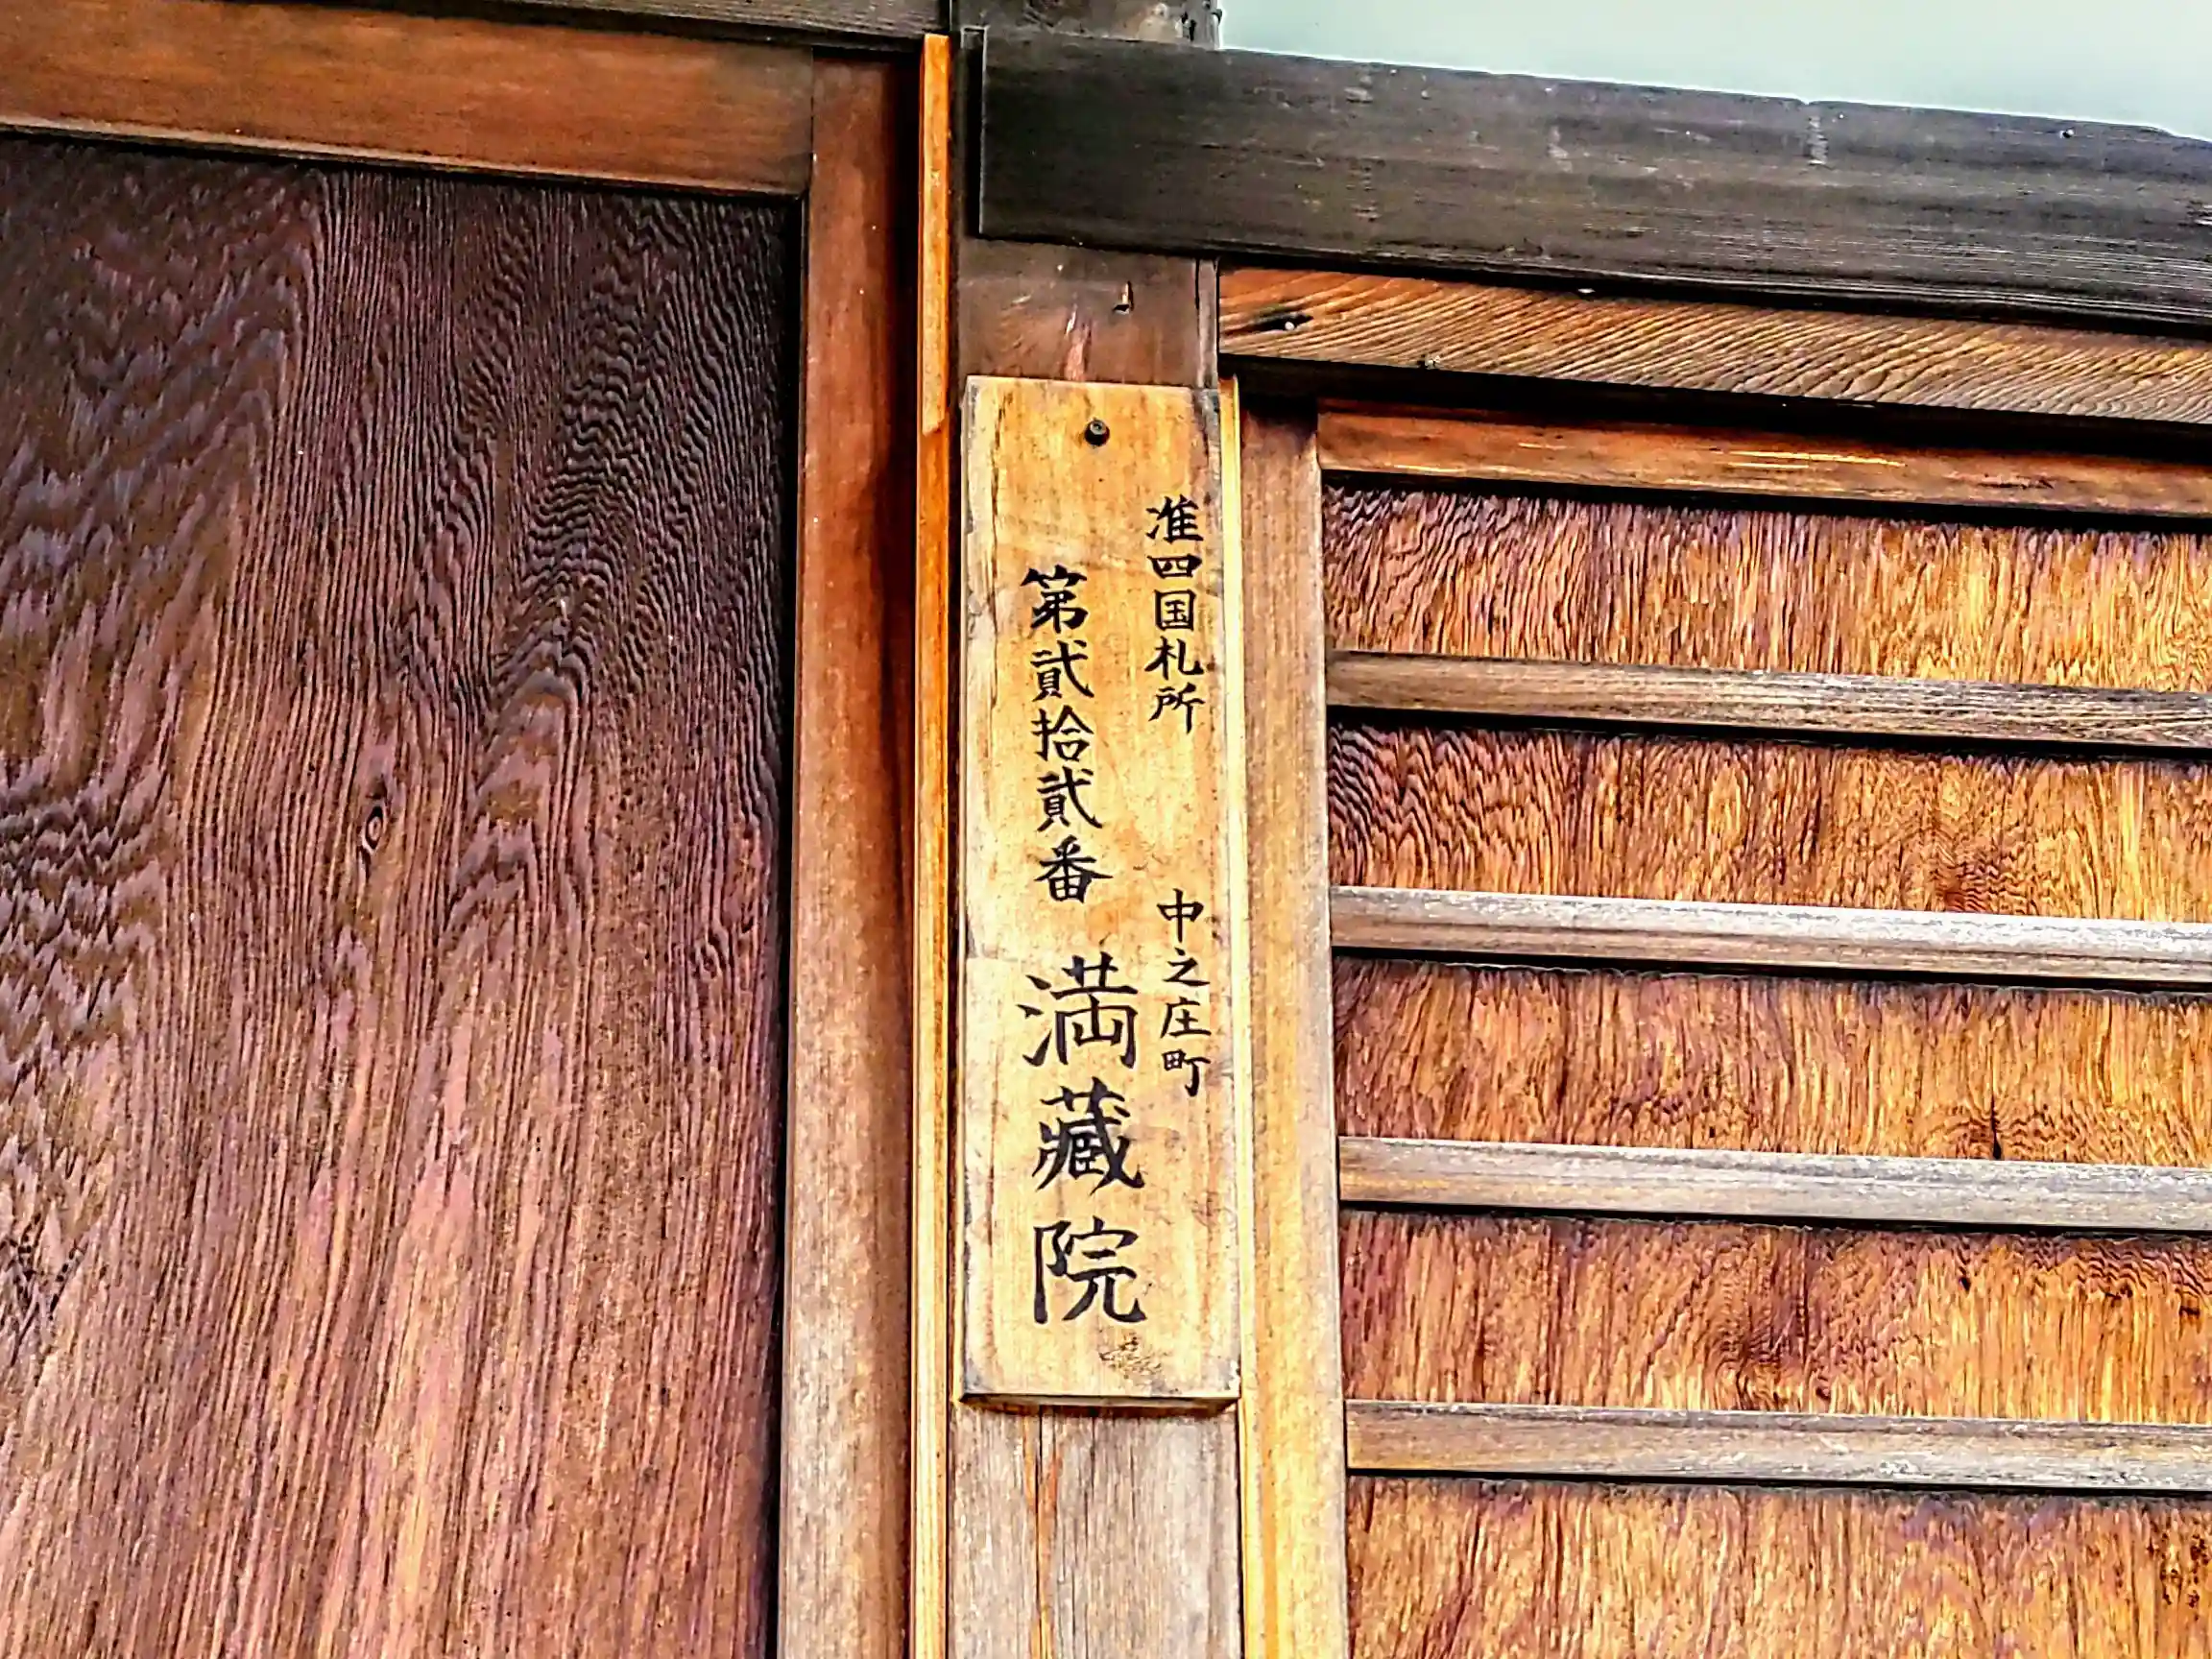 准四国札所　中之庄町
第貳拾貳番　満蔵院